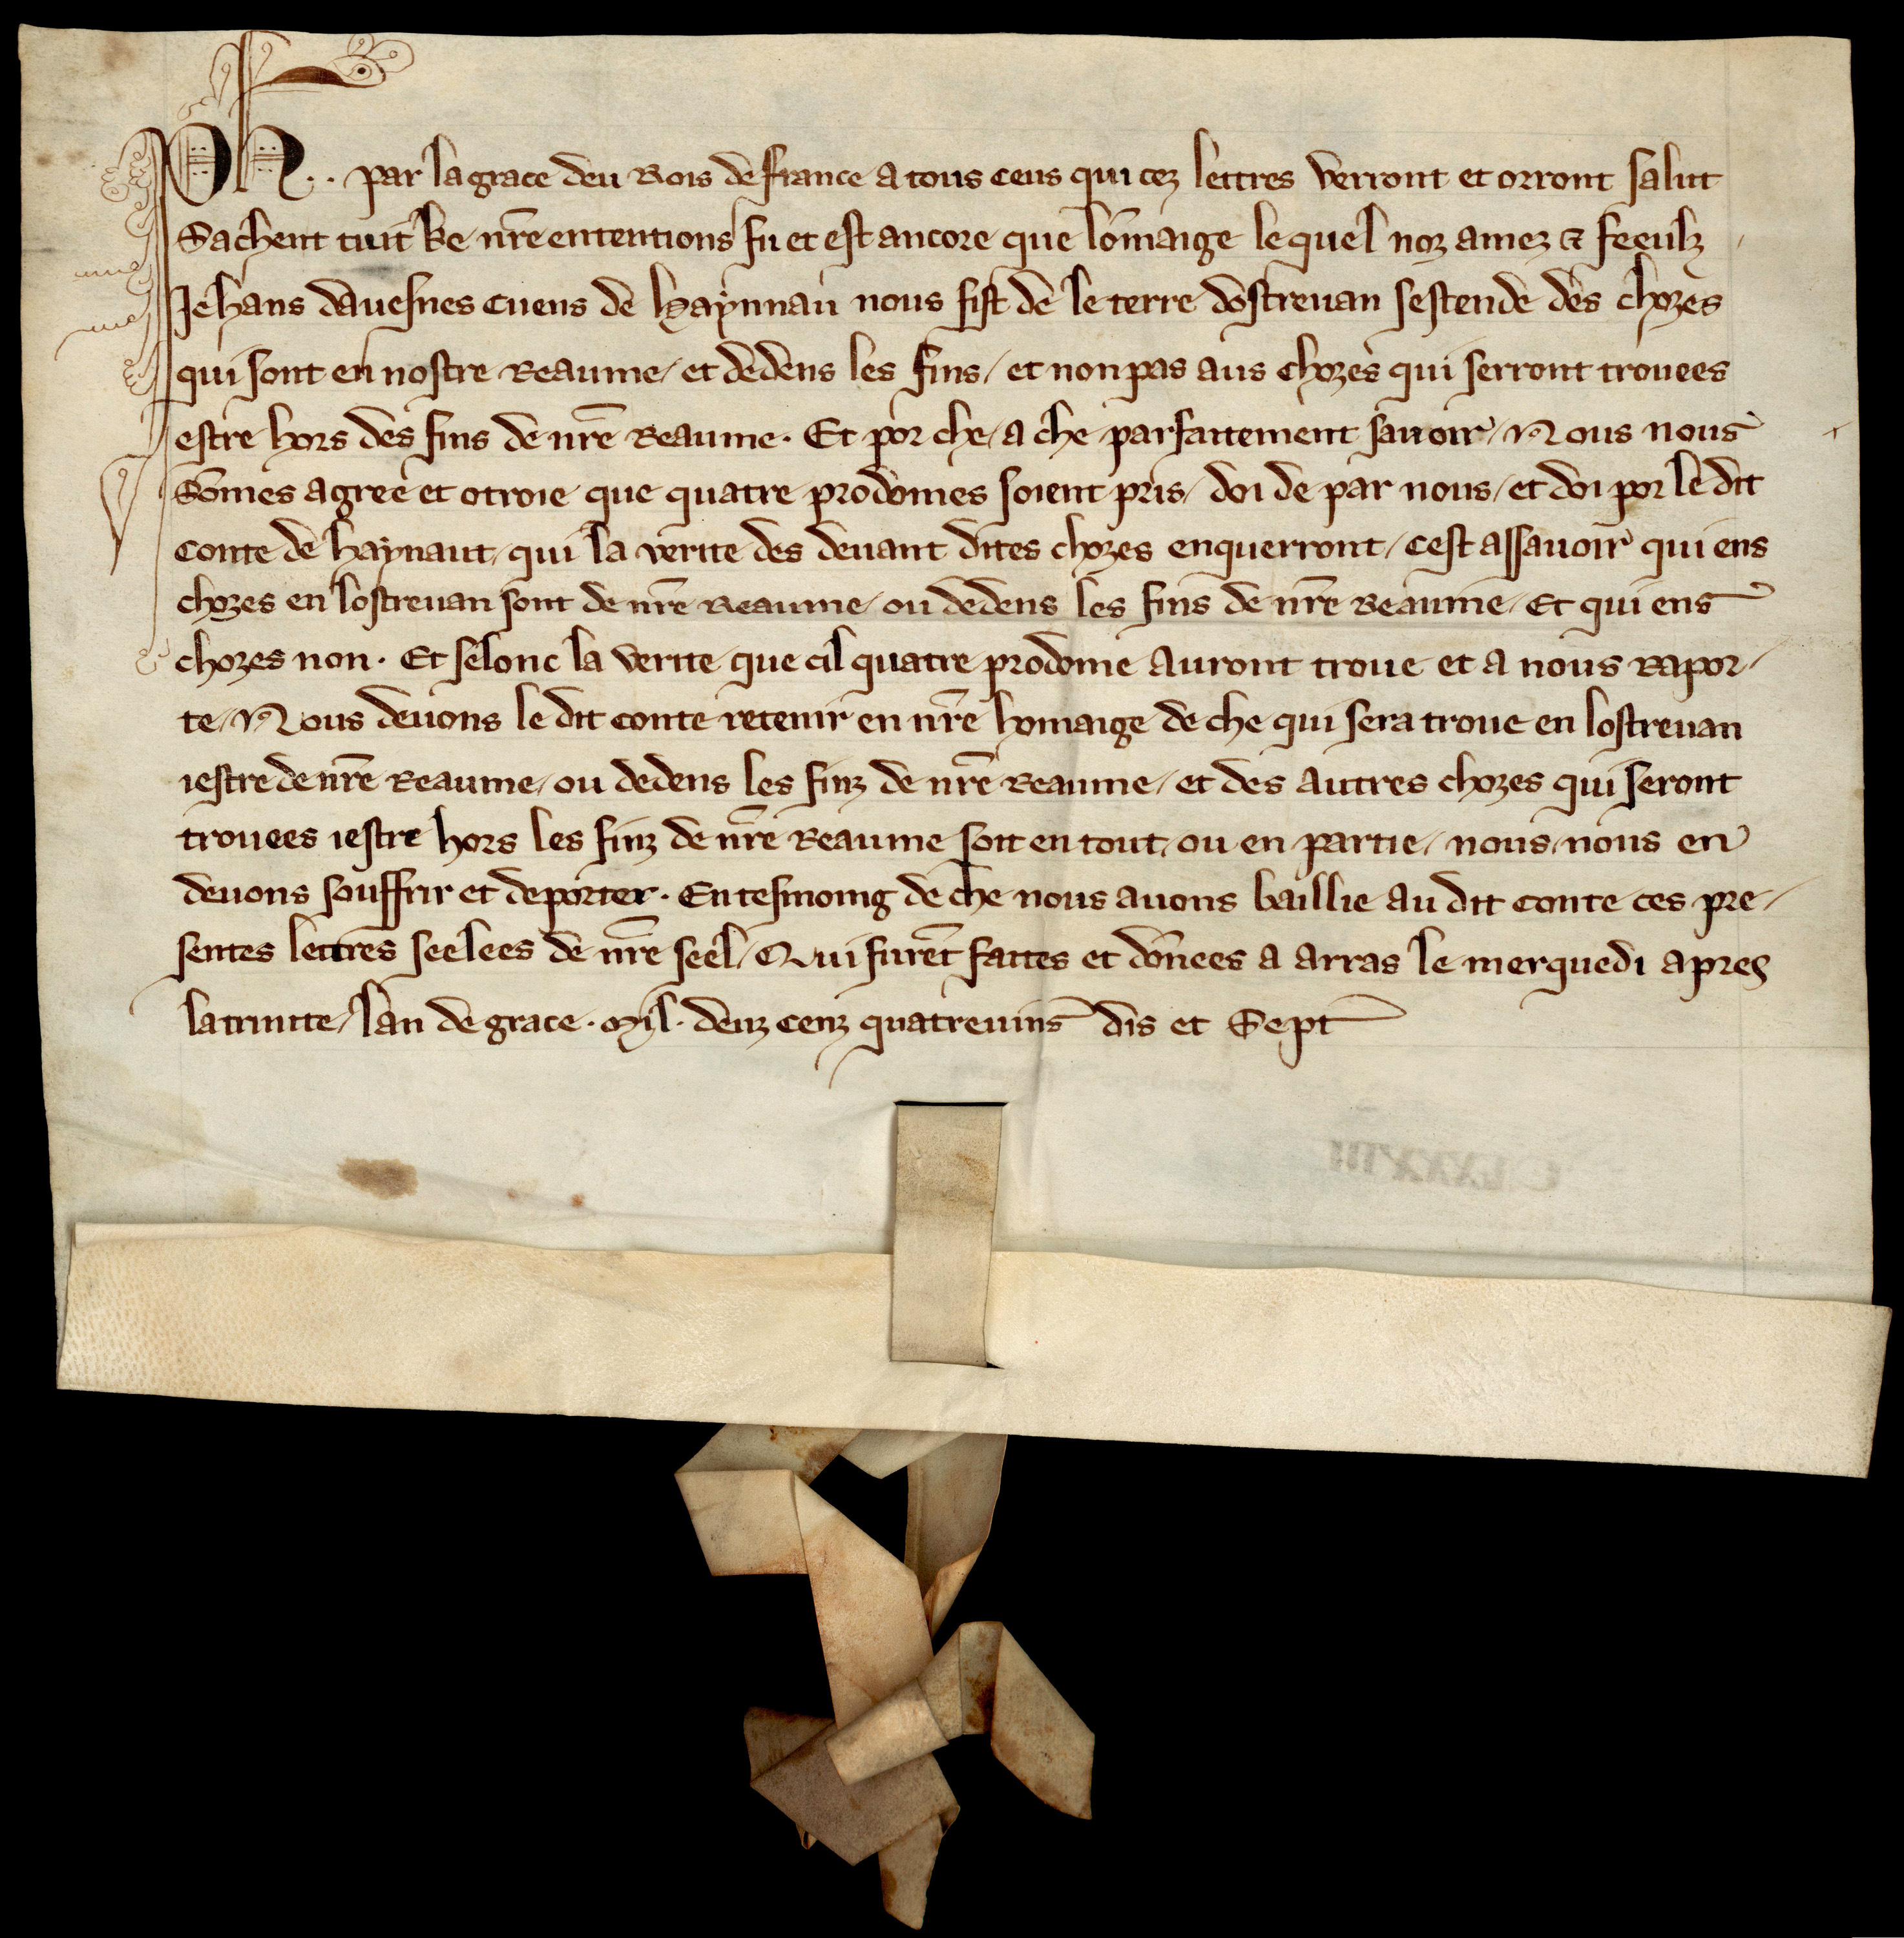 Ph.. par la grace deu Rois de france a tous ceus qui cez lettres verront et orront salut
Sachent tuit ke nr̄e ententions fu et est ancore que lōmaige le quel noz amez & feeulz
Jehans dauesnes cuens de haynnau nous fist de le terre dostreuan sestende des chozes
qui sont en nostre Reaume / et dedens les fins / et non pas aus chozes qui serront trouees
estre hors des fins de nr̄e Reaume. Et por che / a che parfaitement sauoir / Nous nous
Sōmes agree et otroie que quatre prodomes soient pris / doi de par nous / et doi por le dit
conte de haynaut / qui la verite des deuant dites chozes enquerront / cest assauoir qui eus
chozes en lostreuan sont de nr̄e Reaume / ou dedens les fins de nr̄e Reaume / Et qui eus
chozes non. Et selonc la verite que cil quatre prodome auront troue et a nous Rapor/
te / Nous deuons le dit conte retenir en nr̄e homaige de che qui sera troue en lostreuan
iestre de nr̄e Reaume / ou dedens les finz de nr̄e Reaume / et des autres chozes qui seront
trouees iestre hors les finz de nr̄e Reaume soit en tout / ou en partie / nous / nous en
deuons souffrir et deporter. En tesmoing de che nous auons baillie au dit conte ces pre/
sentes lettres seelees de nr̄e seel / Qui furēt faites et dōnees a arras le merquedi apres
la trinite / lan de grace. Mil. deuz cenz quatreuins dis et Sept
CLXXXIII